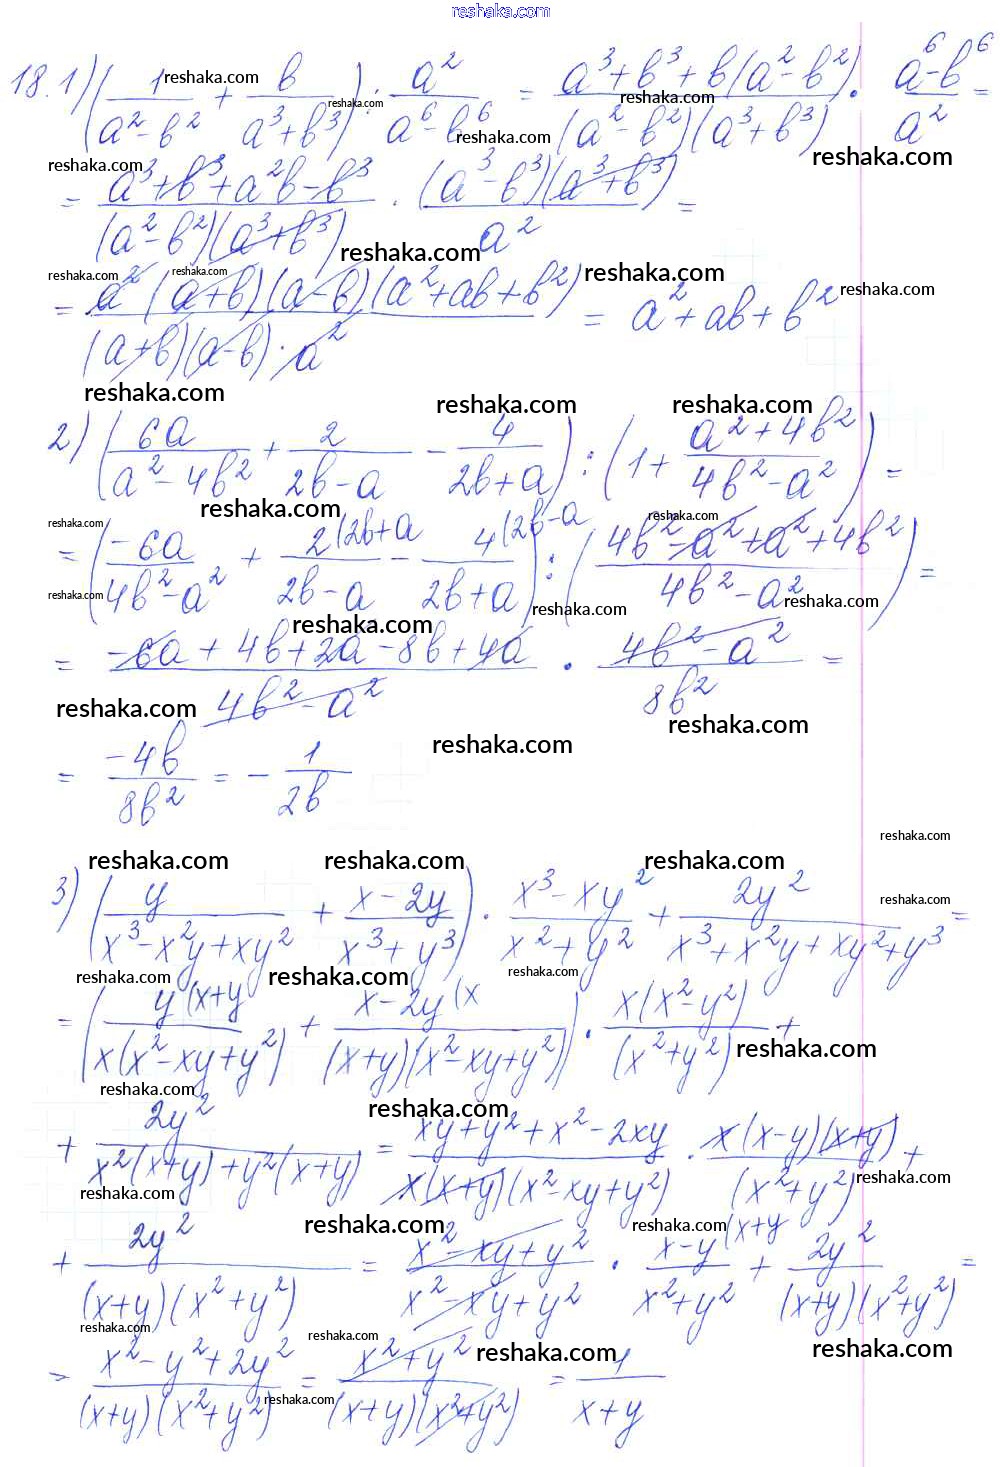 reshaka.com
18. 1) (1/(a²-b²) + b/(a³+b³)) : a²/(a⁶-b⁶) = (a³+b³+b(a²-b²))/((a²-b²)(a³+b³)) · (a⁶-b⁶)/a² =
= (a³+b³+a²b-b³)/((a²-b²)(a³+b³)) · ((a³-b³)(a³+b³))/a² =
= (a²(a+b)(a-b)(a²+ab+b²))/((a+b)(a-b)·a²) = a²+ab+b²
2) (6a/(a²-4b²) + 2/(2b-a) - 4/(2b+a)) : (1 + (a²+4b²)/(4b²-a²)) =
= (-6a/(4b²-a²) + 2(2b+a/(2b-a) - 4(2b-a/(2b+a)) : ((4b²-a²+a²+4b²)/(4b²-a²)) =
= (-6a+4b+2a-8b+4a)/(4b²-a²) · (4b²-a²)/8b² =
= -4b/8b² = -1/2b
3) (y/(x³-x²y+xy²) + (x-2y)/(x³+y³)) · (x³-xy²)/(x²+y²) + 2y²/(x³+x²y+xy²+y³) =
= (y(x+y/(x(x²-xy+y²)) + x-2y(x/((x+y)(x²-xy+y²))) · x(x²-y²)/(x²+y²) +
+ 2y²/(x²(x+y)+y²(x+y)) = (xy+y²+x²-2xy)/(x(x+y)(x²-xy+y²)) · x(x-y)(x+y)/(x²+y²) +
+ 2y²/((x+y)(x²+y²)) = (x²-xy+y²)/(x²-xy+y²) · x-y(x+y/(x²+y²) + 2y²/((x+y)(x²+y²)) =
= (x²-y²+2y²)/((x+y)(x²+y²)) = (x²+y²)/((x+y)(x²+y²)) = 1/(x+y)